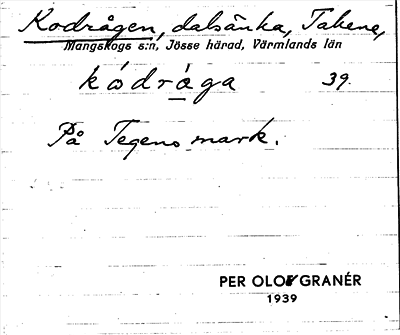 Kodrågen, dalsänka, Takene,
Mangskogs s:n, Jösse härad, Värmlands län
kódråga 39.
På Tegens mark.
PER OLOF GRANÉR
1939